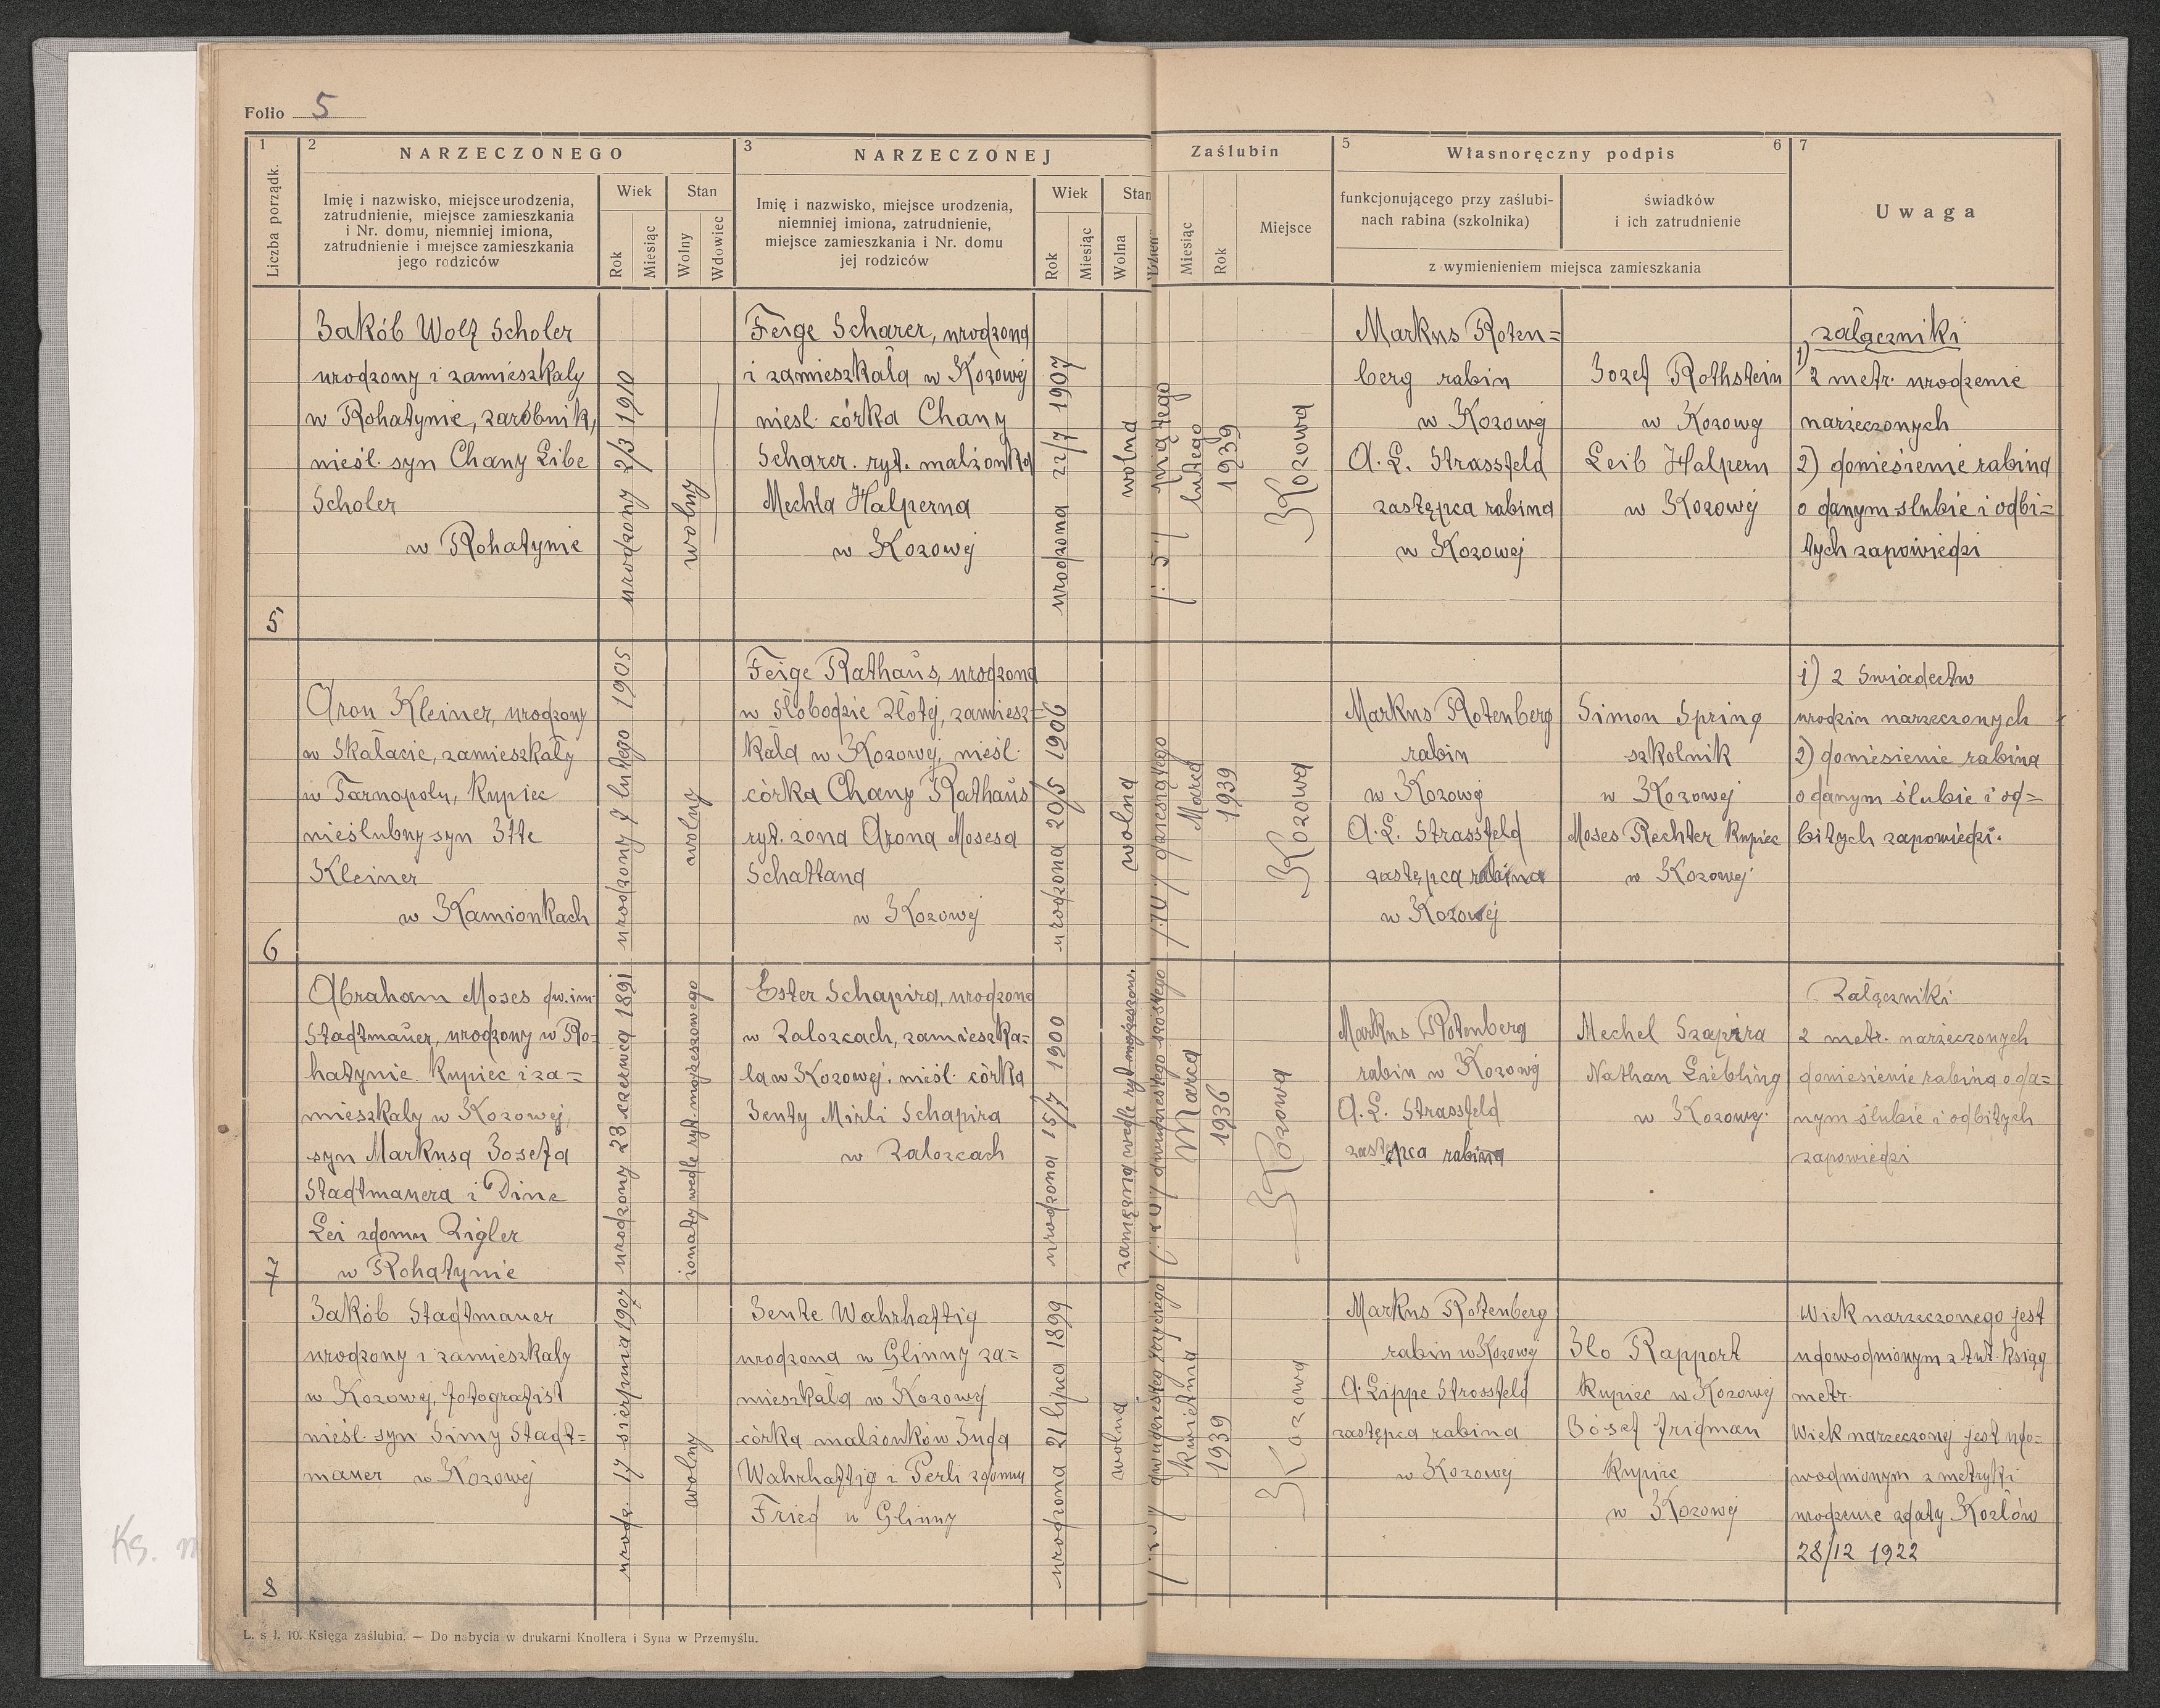 Folio 5
1
Liczba porządk.
2
NARZECZONEGO
Imię i nazwisko, miejsce urodzenia,
zatrudnienie, miejsce zamieszkania
i Nr. domu, niemniej imiona,
zatrudnienie i miejsce zamieszkania
jego rodziców
Wiek
Rok
Miesiąc
Stan
Wolny
Wdowiec
3
NARZECZONEJ
Imię i nazwisko, miejsce urodzenia,
niemniej imiona, zatrudnienie,
miejsce zamieszkania i Nr. domu
jej rodziców
Wiek
Rok
Miesiąc
Stan
Wolna
Zaślubin
Dzień
Miesiąc
Rok
Miejsce
5
Własnoręczny podpis
6
funkcjonującego przy zaślubi-
nach rabina (szkolnika)
świadków
i ich zatrudnienie
z wymienieniem miejsca zamieszkania
7
Uwaga
5
Jakób Wolf Scholer
urodzony i zamieszkaly
w Rohatynie, zarobnik,
nieśl. syn Chany Libe
Scholer
w Rohatynie
urodzony 2/3 1910
wolny
Feige Scharer, urodzona
i zamieszkała w Kozowej
niesl. córka Chany
Scharer. ryt. malżonka
Mechla Halperna
w Kozowej
urodzona 22/7 1907
wolna
/: 5 :/ piątego
lutego
1939
Kozowa
Markus Roten=
berg rabin
w Kozowej
A. L. Strassfeld
zastępca rabina
w Kozowej
Jozef Rothstein
w Kozowej
Leib Halpern
w Kozowej
załączniki
1) 2 metr. urodzenie
narzeczonych
2) doniesienie rabina
o danym slubie i odbi=
tych zapowiedzi
6
Aron Kleiner, urodzony
w Skałacie, zamieszkały
w Tarnopolu, Kupiec
nieślubny syn Itte
Kleiner
w Kamionkach
urodzony 7 lutego 1905
wolny
Feige Rathaus, urodzona
w Słobodzie Złotej, zamiesz=
kała w Kozowej, nieśl.
córka Chany Rathaus
ryt. zona Arona Mosesa
Schattana
w Kozowej
urodzona 20/5 1906
wolna
/:10:/ dziesiątego
Marca
1939
Kozowa
Markus Rotenberg
rabin
w Kozowej
A. L. Strassfeld
zastępca rabina
w Kozowej
Simon Spring
szkolnik
w Kozowej
Moses Rechter Kupiec
w Kozowej
1) 2 Swiadectw
urodzin narzeczonych
2) doniesienie rabina
o danym ślubie i od=
bitych zapowiedzi.
7
Abraham Moses dw. im.
Stadtmauer, urodzony w Ro=
hatynie Kupiec i za=
mieszkaly w Kozowej,
syn Markusa Josefa
Stadtmauera i Dine
Lei zdomu Zigler
w Rohatynie
urodzony 23 czerwca 1891
żonaty wedle ryt. mojżeszowego
Ester Schapira, urodzona
w Zalozcach, zamieszka=
la w Kozowej, nieśl. córka
Jenty Mirli Schapira
w Zalozcach
urodzona 15/7 1900
zamężna wedle ryt. mojżeszow.
dwudziestego szóstego
Marca
1936
Kozowa
Markus Rotenberg
rabin w Kozowej
A. L. Strassfeld
zastępca rabina
Mechel Szapira
Nathan Liebling
w Kozowej
Załączniki
2 metr. narzeczonych
doniesienie rabina o da=
nym ślubie i odbitych
zapowiedzi
8
Jakób Stadtmauer
urodzony i zamieszkaly
w Kozowej, fotografist
nieśl. syn Simy Stadt=
mauer w Kozowej
urodz. 17 sierpnia 1907
wolny
Jente Wahrhaftig
urodzona w Glinny za=
mieszkała w Kozowej
córka malżonków Juda
Wahrhaftig i Perli zdomu
Fried w Glinny
urodzona 21 lipca 1899
wolna
dwudziesteg trzeciego
kwietnia
1939
Kozowa
Markus Rotenberg
rabin w Kozowej
A. Lippe Strossfeld
zastępca rabina
w Kozowej
Ilo Rapport
Kupiec w Kozowej
Józef Fridman
Kupiec
w Kozowej
Wiek narzeczonego jest
udowodnionym z tut. ksiąg
metr.
Wiek narzeczonej jest udo=
wodnionym z metryki
urodzenie zdaty Kozlów
28/12 1922
L. s ł. 10. Księga zaślubin. — Do nabycia w drukarni Knollera i Syna w Przemyślu.
Ks. m